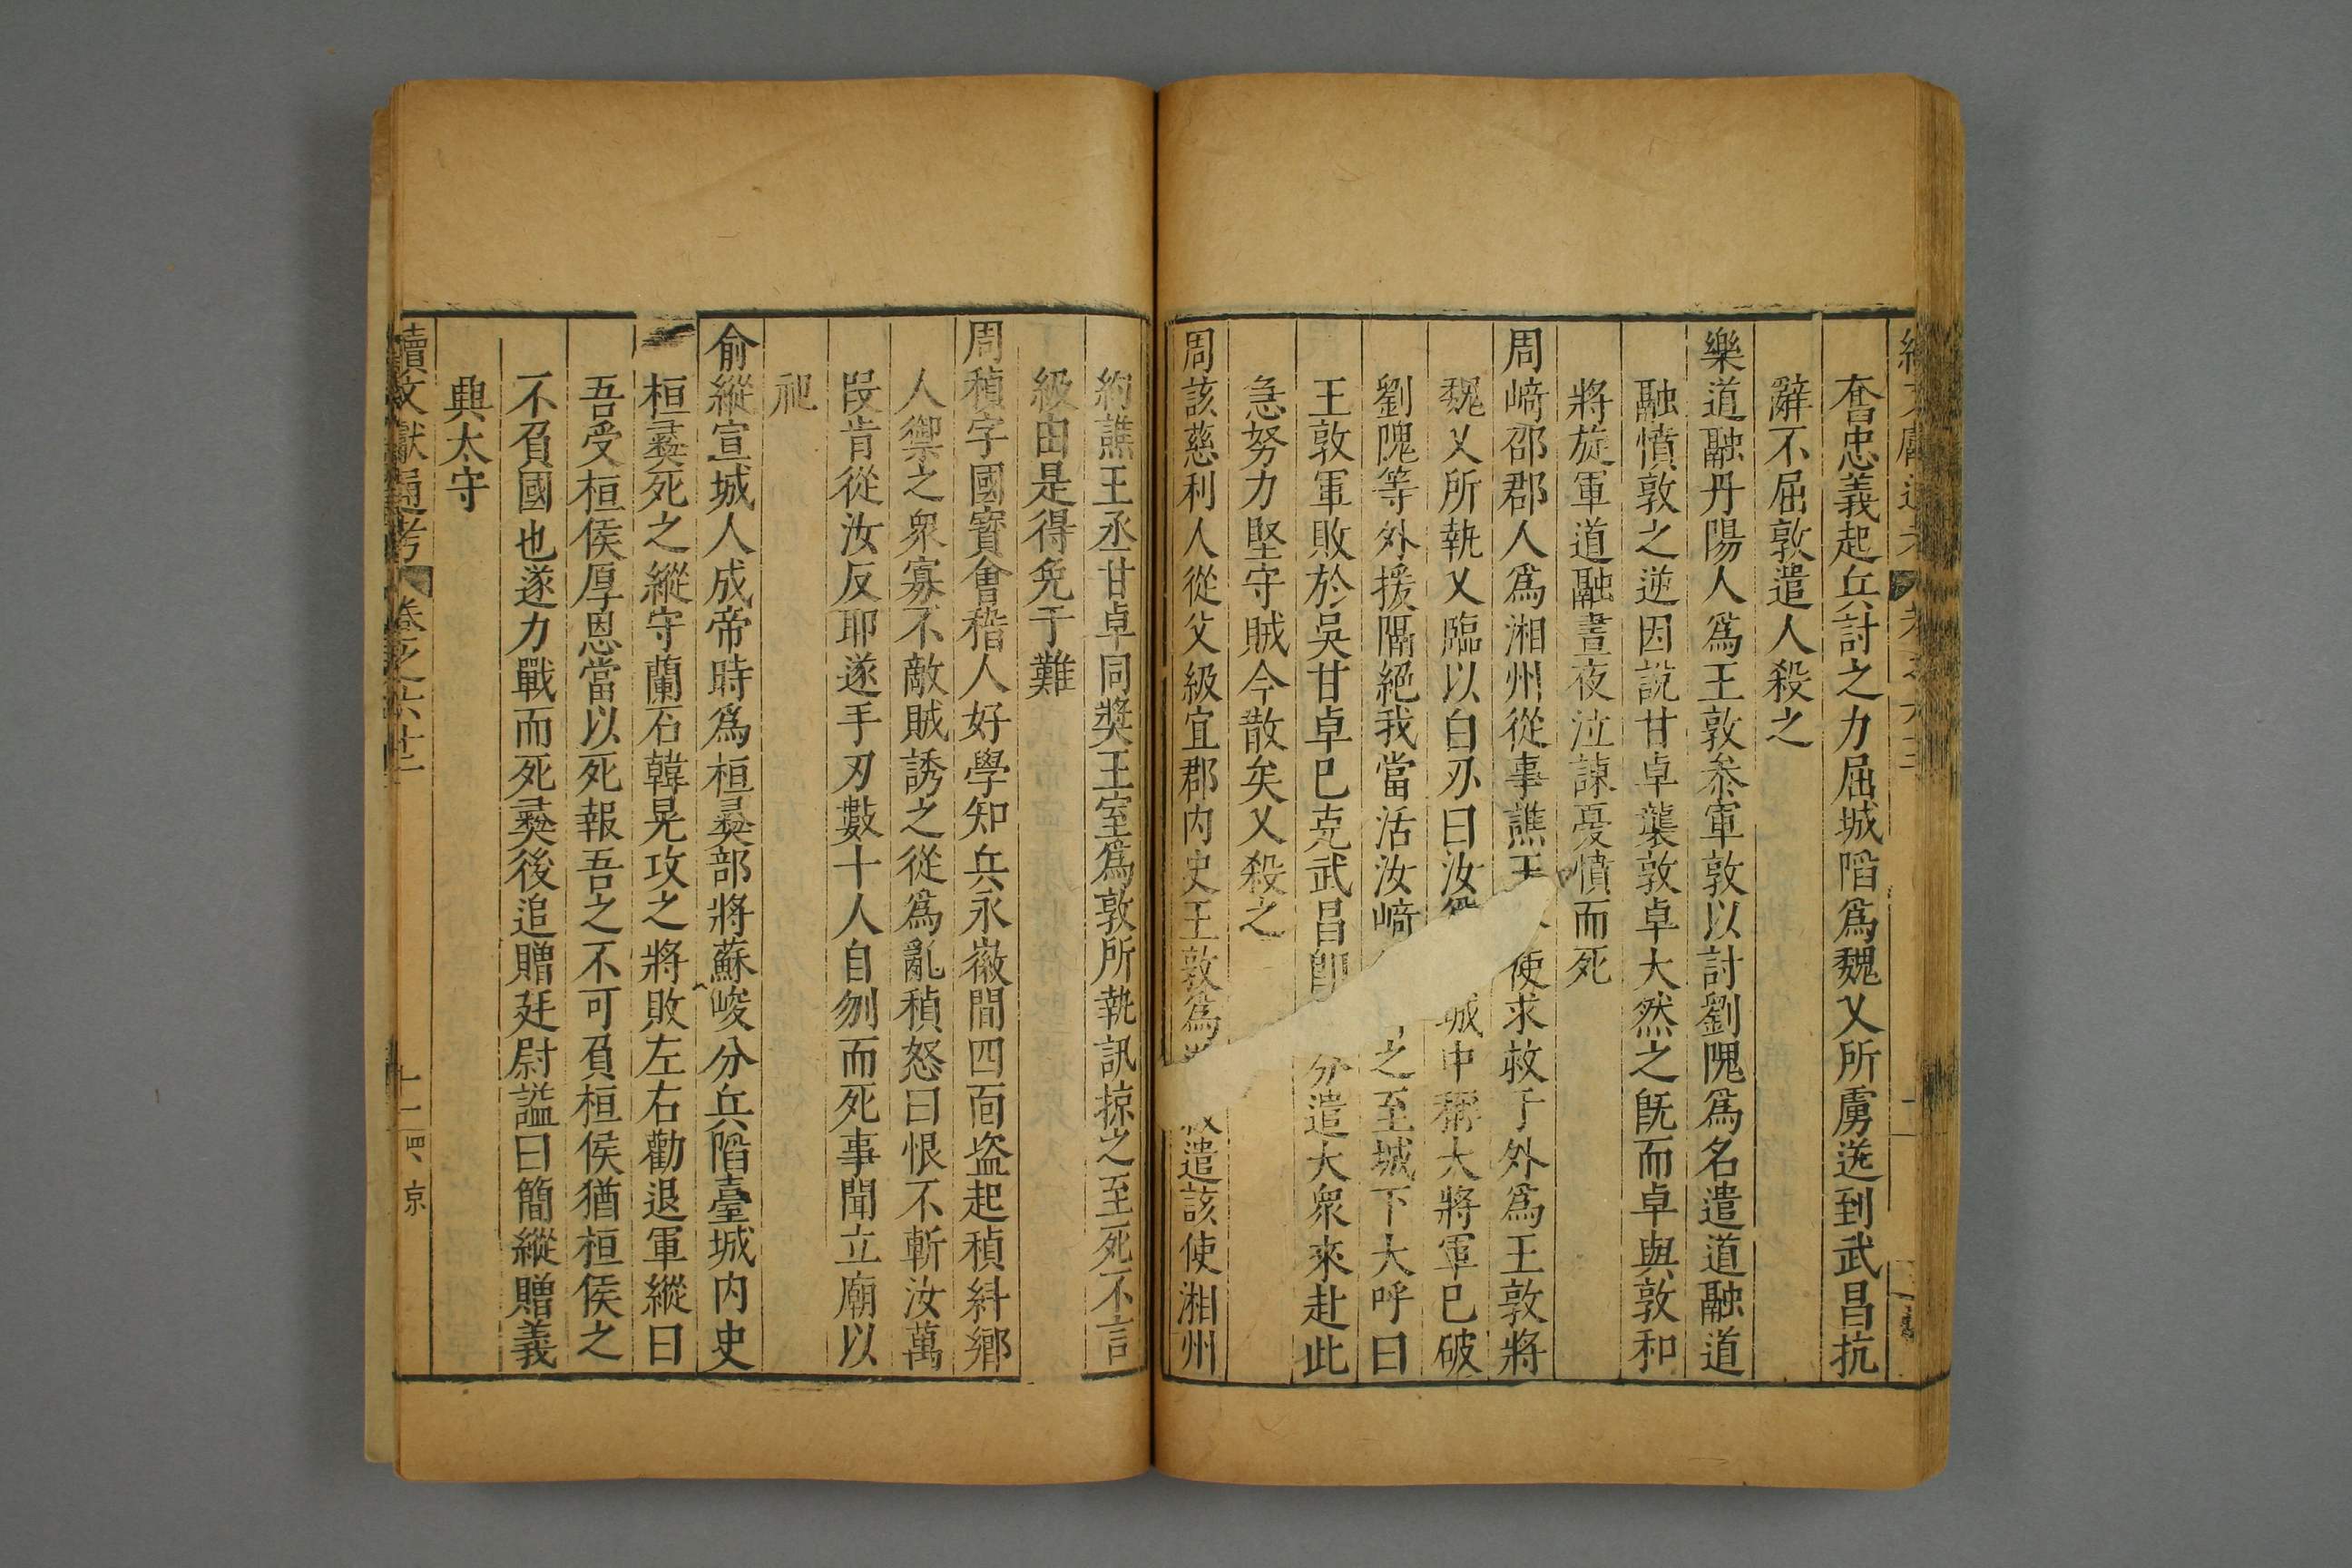 奮忠義起兵討之力屈城䧟爲魏乂所虜送到武昌抗
辭不屈敦遣人殺之
樂道融丹陽人爲王敦叅軍敦以討劉隗爲名遣道融道
融憤敦之逆因說甘卓襲敦敦卓大然之旣而卓與敦和
將旋軍道融晝夜泣諫憂憤而死
周﨑邵郡人爲湘州從事譙王使求救于外爲王敦將
魏乂所執乂臨以白刃曰汝爲城中稱大將軍巳破
劉隗等外援隔絕我當活汝﨑之至城下大呼曰
王敦軍敗於吳甘卓巳克武昌卽分遣大衆來赴此
急努力堅守賊今散矣乂殺之
周該慈利人從父級宜郡内史王敦爲遣該使湘州
約譙王丞甘卓同獎王室爲敦所執訊掠之至死不言
級由是得免于難
周稹字國寳會稽人好學知兵永㣲間四靣盗起稹糾鄉
人禦之衆寡不敵賊誘之從爲亂稹怒曰恨不斬汝萬
叚肯從汝反耶遂手刃數十人自刎而死事聞立廟以
祀
俞縱宣城人成帝時爲桓彞部將蘇峻分兵䧟臺城内史
桓彞死之縱守蘭石韓晃攻之將敗左右勸退軍縱曰
吾受桓侯厚恩當以死報吾之不可負桓侯猶桓侯之
不負國也遂力戰而死彞後追贈廷尉謚曰簡縱贈義
興太守
續文獻通考 卷之六十三 十一 四 京